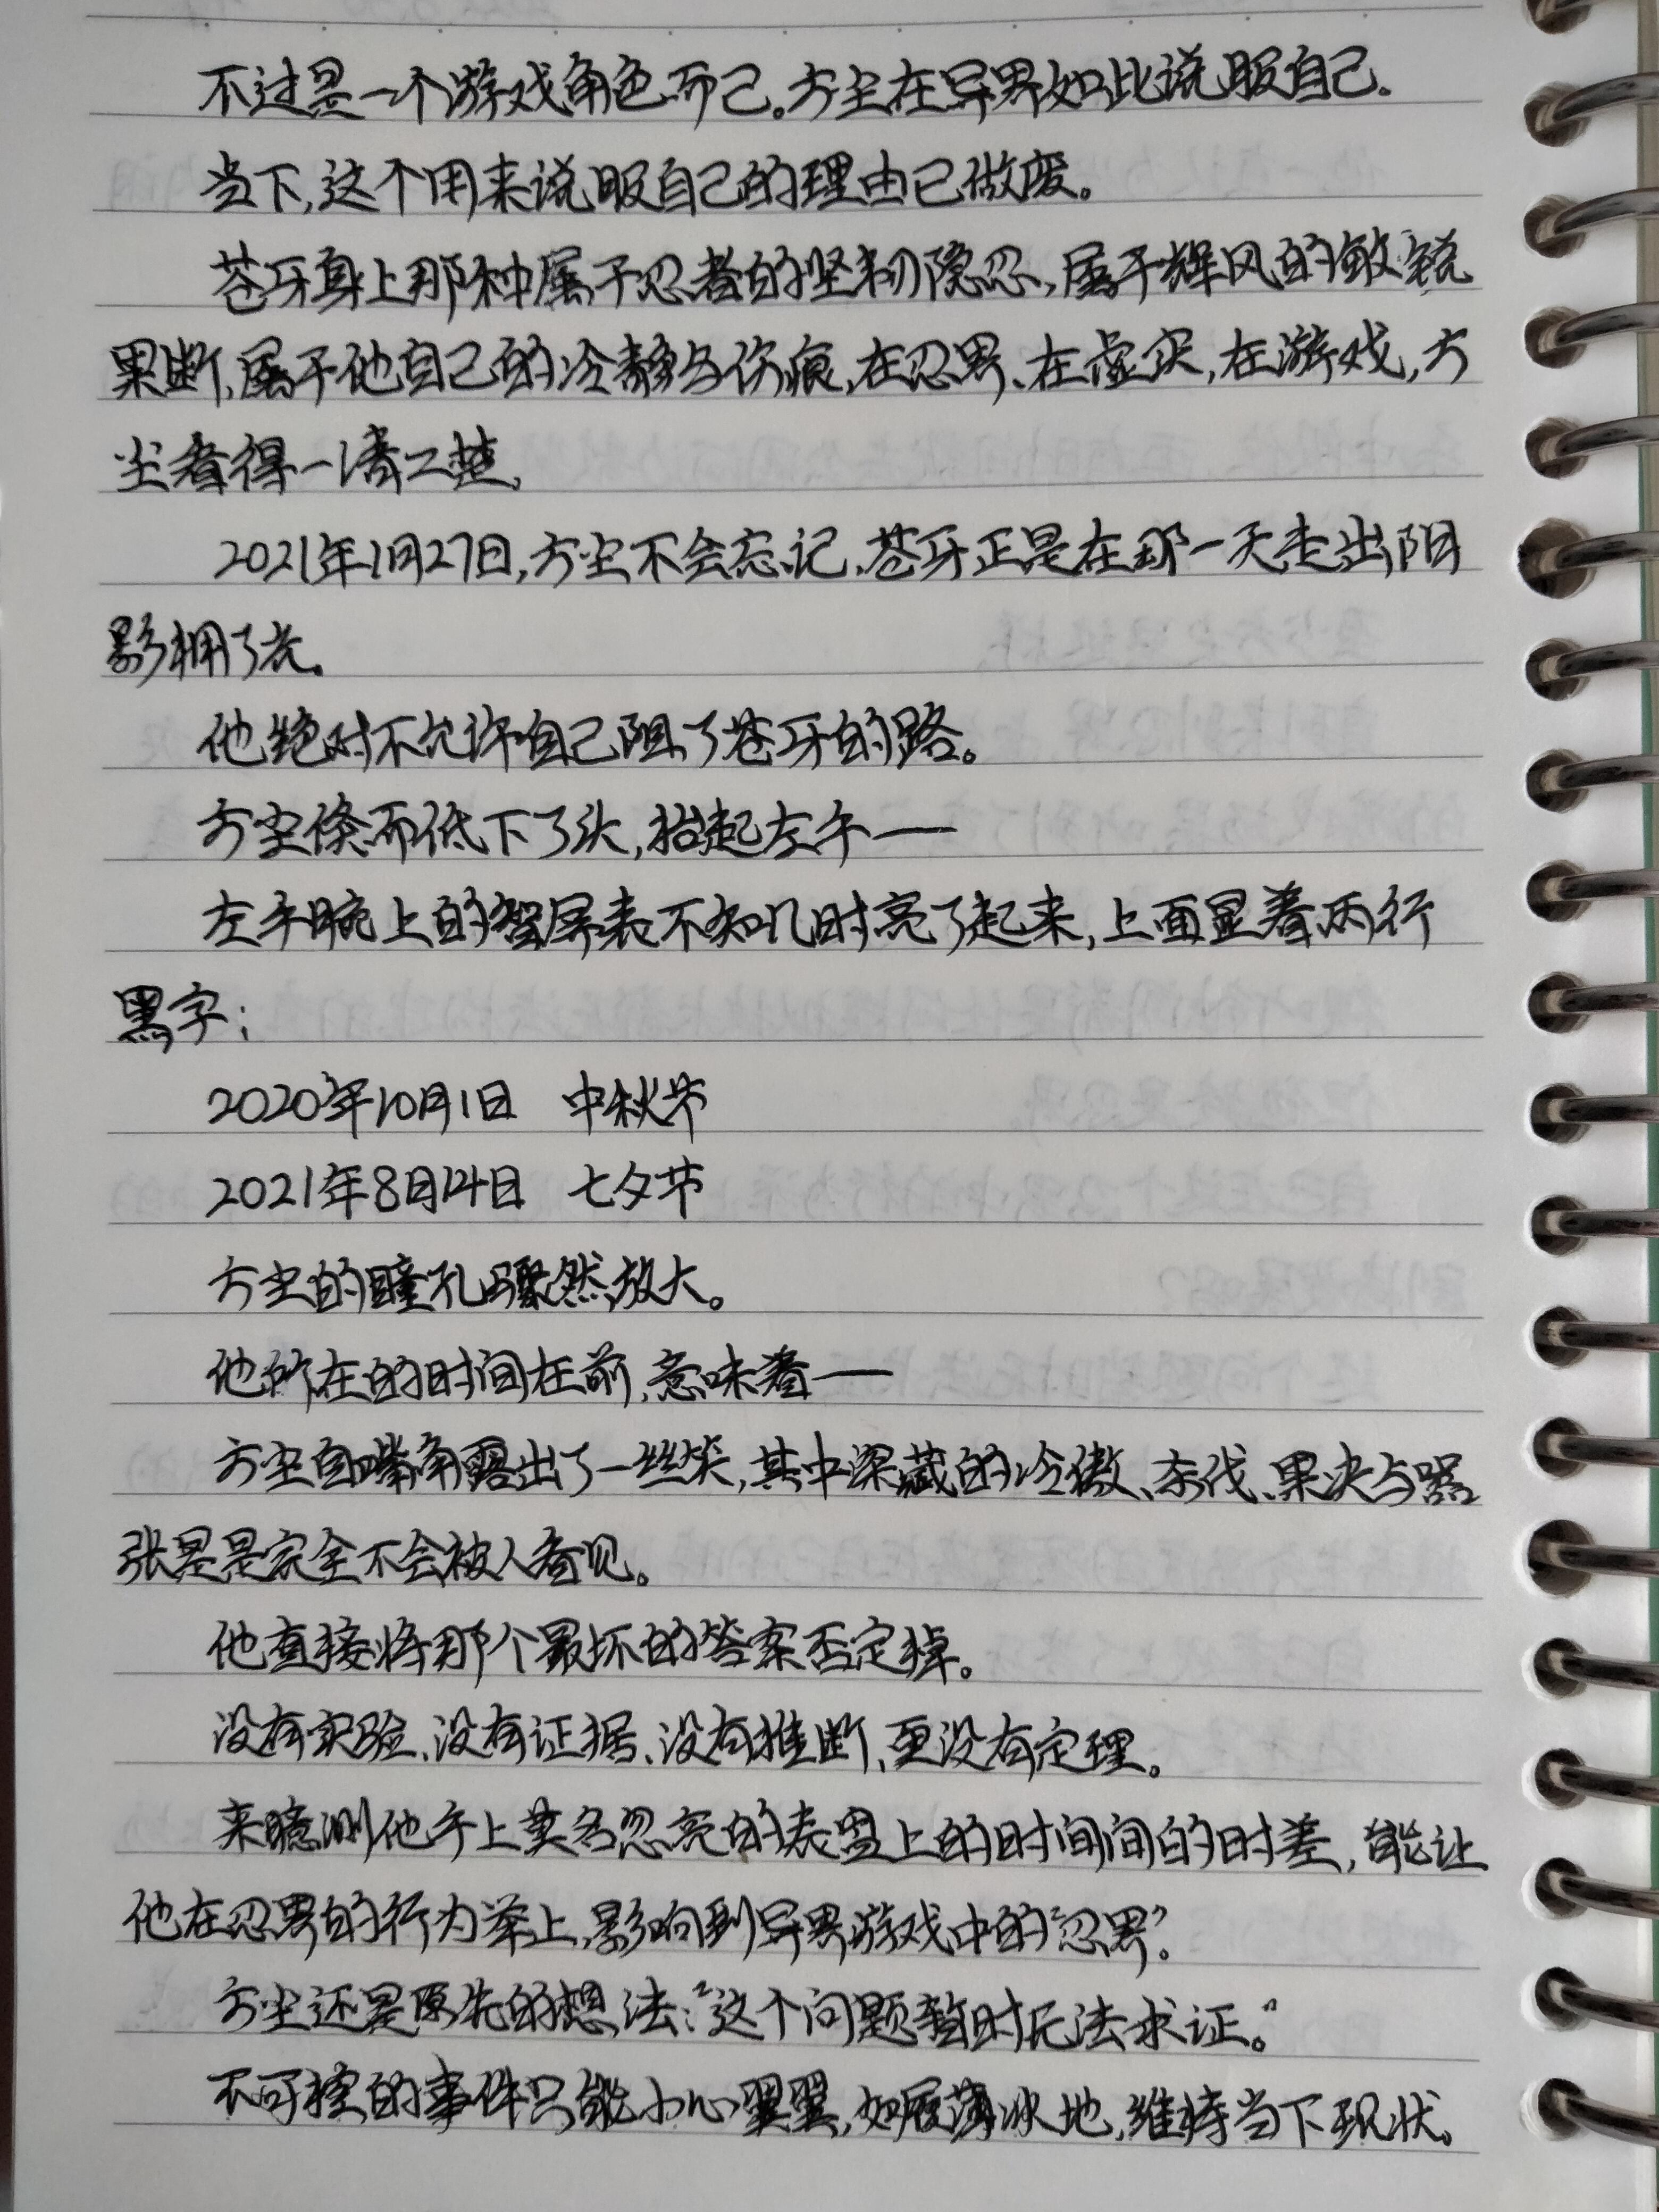 不过是一个游戏角色而已。方尘在异界如此说服自己。
当下,这个用来说服自己的理由已做废。
苍牙身上那种属于忍者的坚韧隐忍、属于辉风的敏锐
果断、属于他自己的冷静与伤痕,在忍界、在虚实,在游戏,方
尘看得一清二楚。
2021年1月27日,方尘不会忘记,苍牙正是在那一天走出阴
影拥了光。
他绝对不允许自己阻了苍牙的路。
方尘倏而低下了头,抬起左手——
左手腕上的智屏表不知几时亮了起来,上面显着两行
黑字:
2020年10月1日 中秋节
2021年8月14日 七夕节
方尘的瞳孔骤然放大。
他所在的时间在前,意味着——
方尘自嘴角露出了一丝笑,其中深藏的冷傲、杀伐、果决与嚣
张是是完全不会被人看见。
他直接将那个最坏的答案否定掉。
没有实验、没有证据、没有推断、更没有定理。
来臆测他手上莫名忽亮的表盘上的时间间的时差,能让
他在忍界的行为举止,影响到异界游戏中的“忍界”。
方尘还是原先的想法:“这个问题暂时无法求证。”
不可控的事件只能小心翼翼,如履薄冰地,维持当下现状。